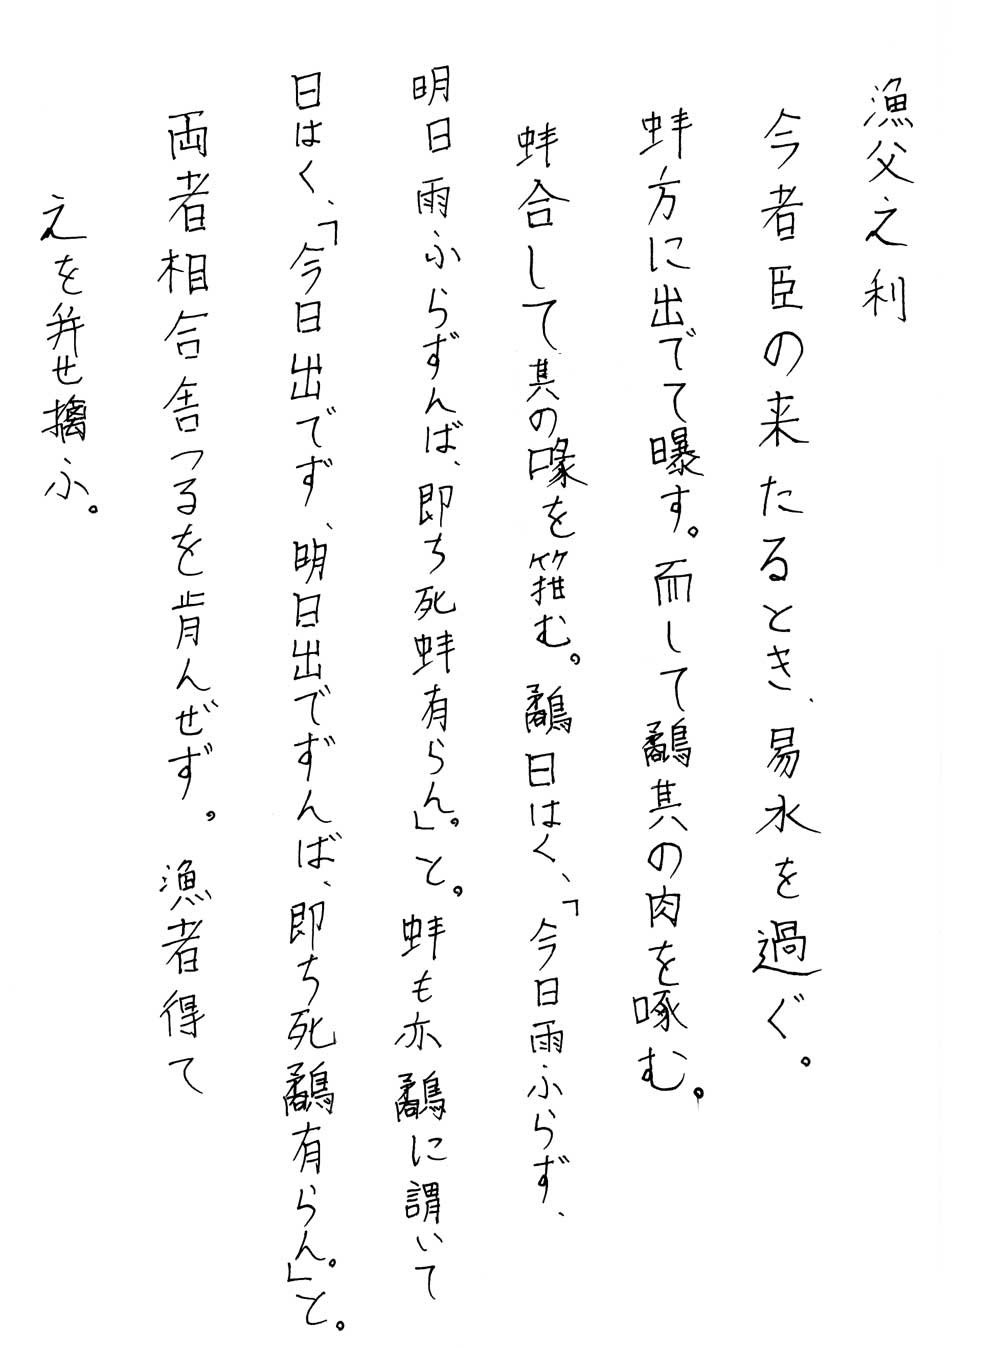 漁父之利
今者臣の来たるとき、易水を過ぐ。
蚌方に出でて曝す。而して鷸其の肉を啄む。
蚌合して其の喙を箝む。鷸曰はく、「今日雨ふらず、
明日雨ふらずんば、即ち死蚌有らん。」と。蚌も亦鷸に謂いて
曰はく、「今日出でず、明日出でずんば、即ち死鷸有らん。」と。
両者相合舎つるを肯んぜず。漁者得て
之を幷せ擒ふ。